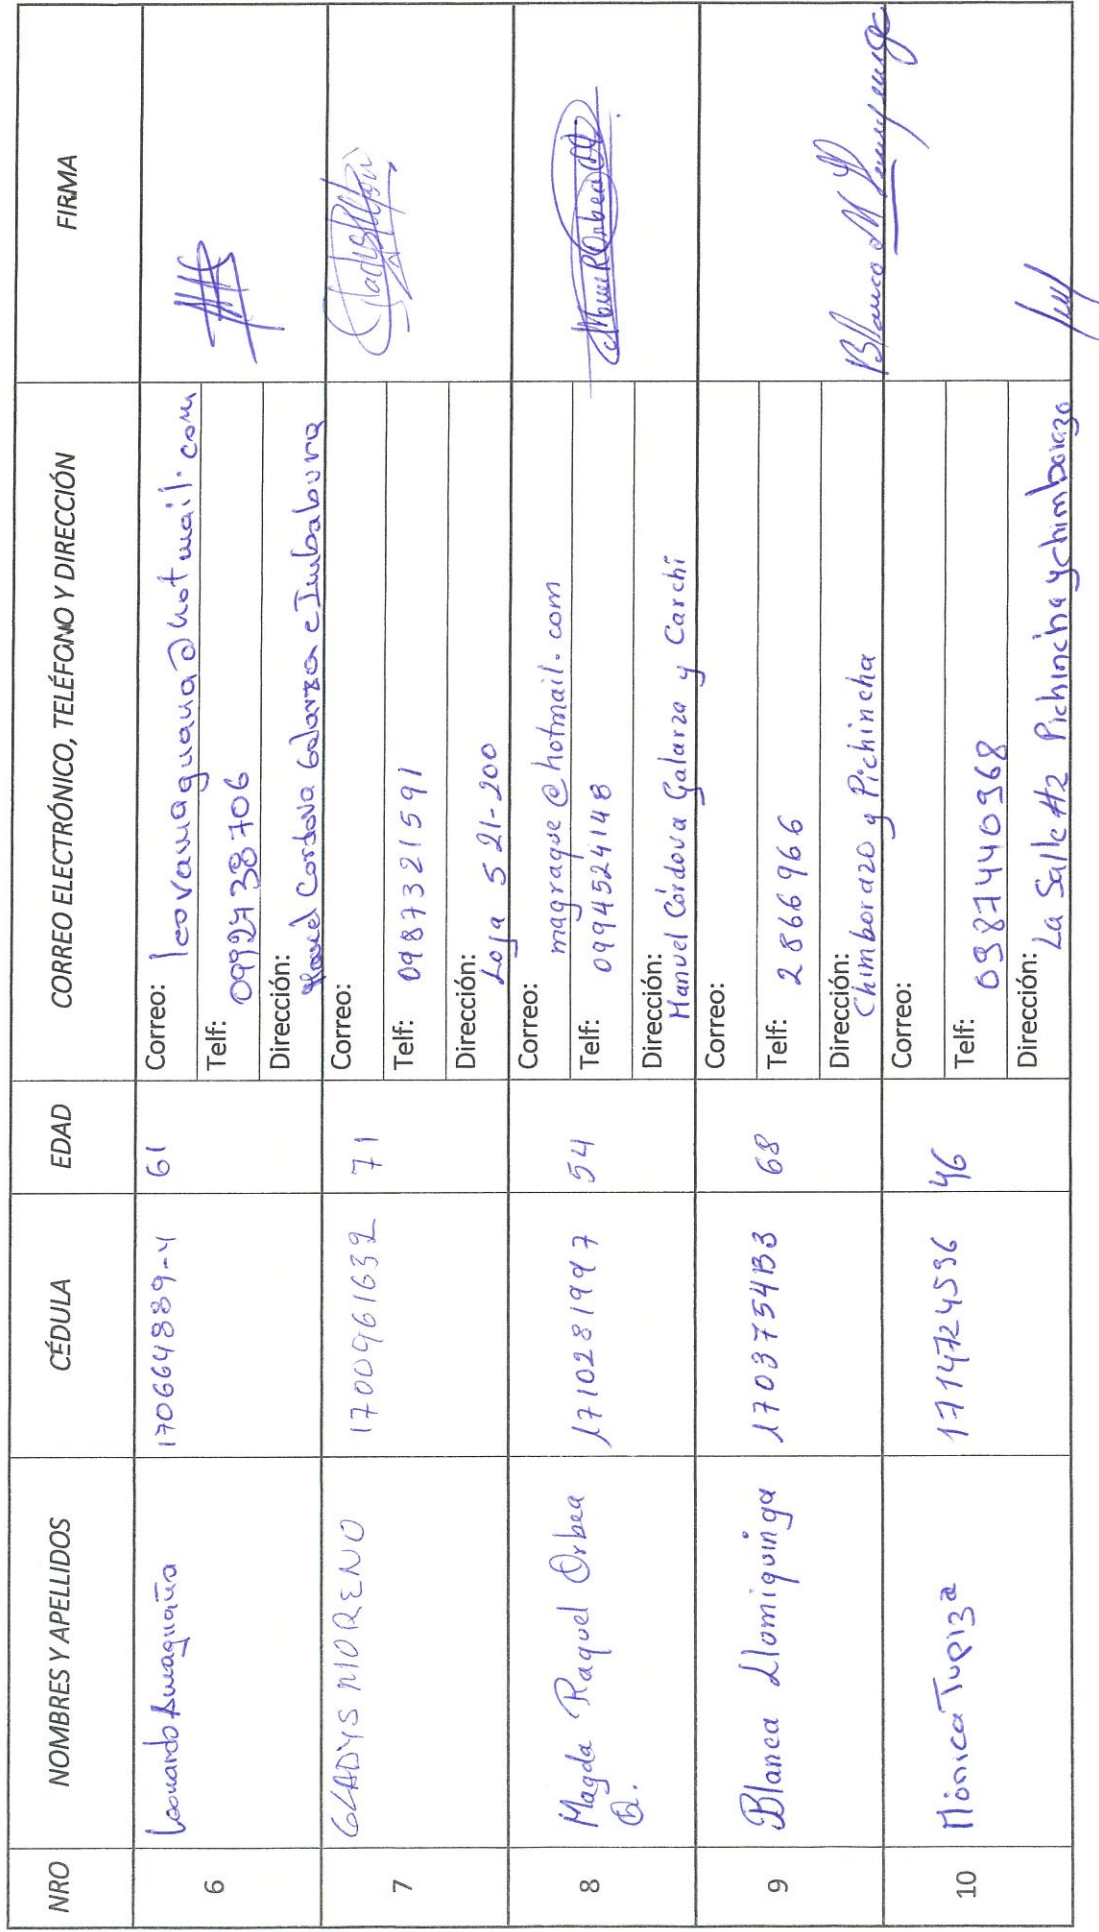 NRO NOMBRES Y APELLIDOS CÉDULA EDAD CORREO ELECTRÓNICO, TELÉFONO Y DIRECCIÓN FIRMA
6 Leonardo Amaguaña 170664889-4 61
Correo: leovamaguana@hotmail.com
Telf: 0992738706
Dirección: Manuel Cordova Galarza e Imbabura
7 GLADYS MORENO 1700961632 71
Correo:
Telf: 0987321591
Dirección: Loja S21-200
8 Magda Raquel Orbea Q. 1710281997 54
Correo: magraque@hotmail.com
Telf: 0994524148
Dirección: Manuel Córdova Galarza y Carchi
9 Blanca Llomiquinga 1703754133 68
Correo:
Telf: 2866966
Dirección: Chimborazo y Pichincha
10 Mónica Tupiza 1714724536 46
Correo:
Telf: 0987440968
Dirección: La Salle #2 Pichincha y chimborazo